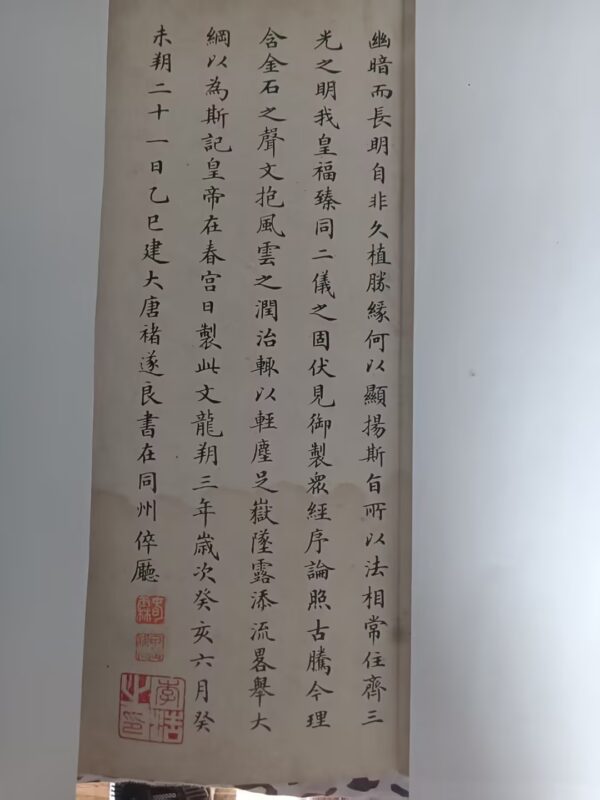 幽暗而長明自非久植勝緣何以顯揚斯旨所以法相常住齊三
光之明我皇福臻同二儀之固伏見御製眾經序論照古騰今理
含金石之聲文抱風雲之潤治輙以輕塵足嶽墜露添流畧舉大
綱以為斯記皇帝在春宮日製此文龍朔三年歲次癸亥六月癸
未朔二十一日乙巳建大唐褚遂良書在同州倅廳